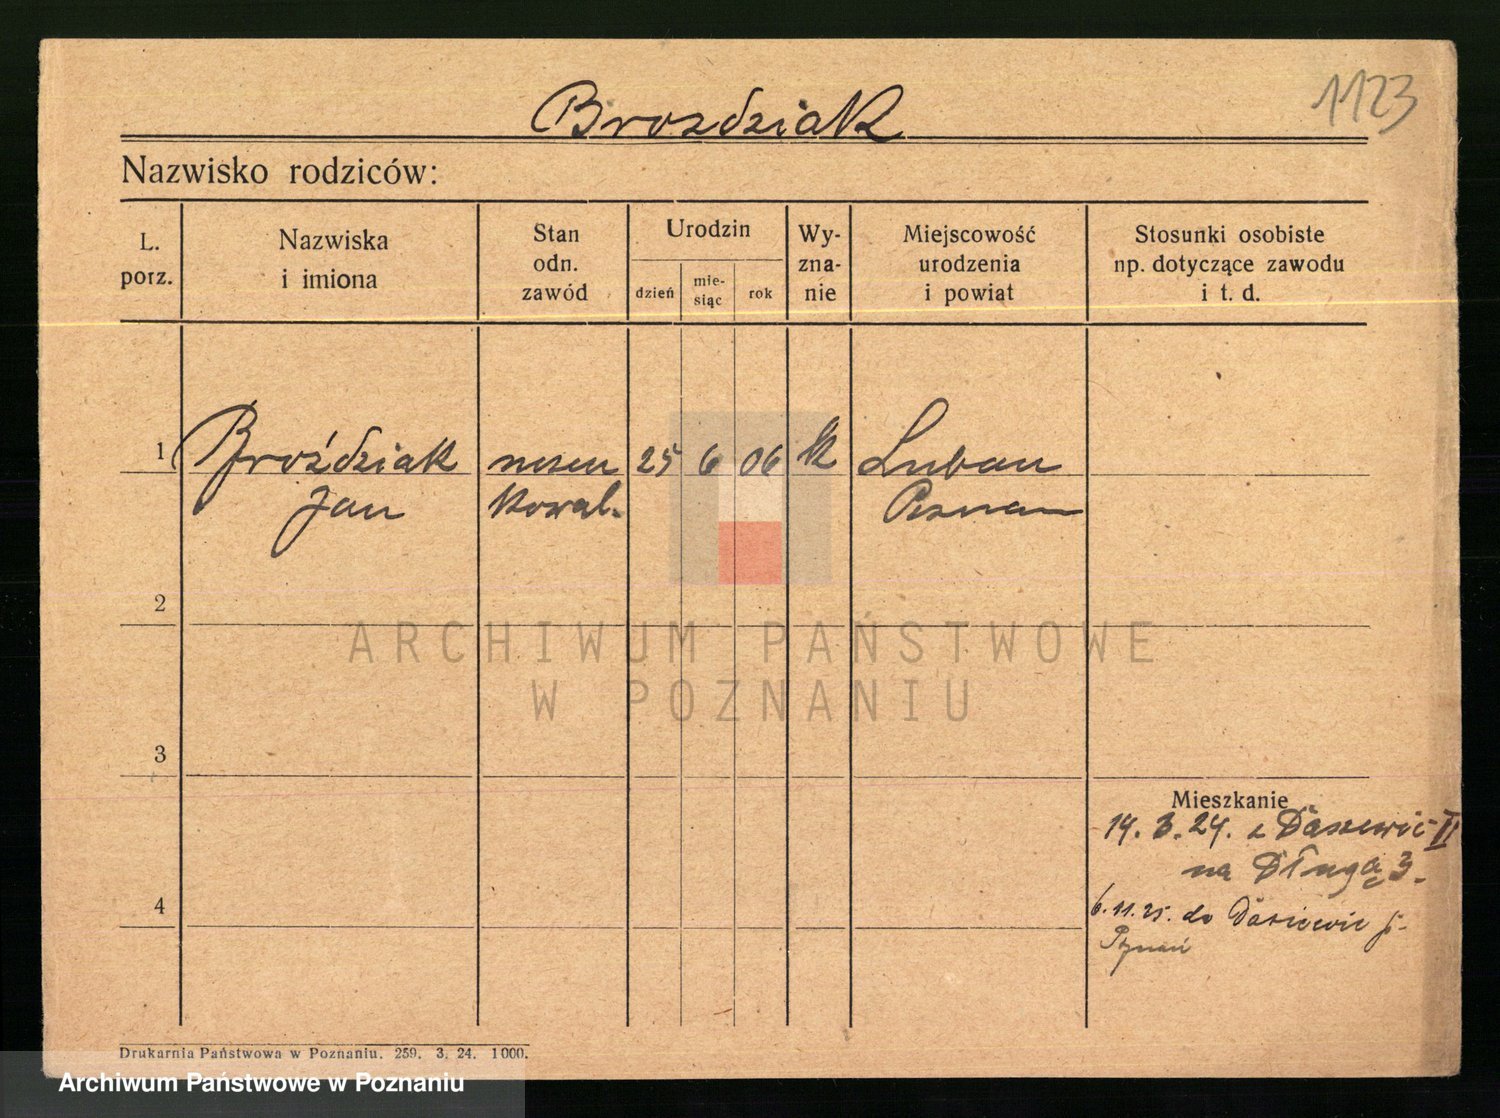 1123
Brozdziak
Nazwisko rodziców:
L. porz.
Nazwiska i imiona
Stan odn. zawód
Urodzin
dzień
mie-siąc
rok
Wy-zna-nie
Miejscowość urodzenia i powiat
Stosunki osobiste np. dotyczące zawodu i t. d.
1 Broździak 25 6 06 k Luban
Jan kowal. Poznan
2
ARCHIWUM PAŃSTWOWE
W POZNANIU
3
Mieszkanie
14. 3. 24. z Daszewic II
na Długą 3.
4
6. 11. 25. do Dasiewic
Drukarnia Państwowa w Poznaniu. 259. 3. 24. 1000.
Archiwum Państwowe w Poznaniu